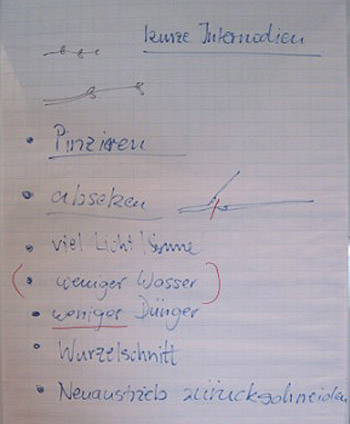 kurze Internodien
Pinzieren
absetzen
viel Licht/Sonne
(weniger Wasser)
weniger Dünger
Wurzelschnitt
Neuaustrieb zurückschneiden